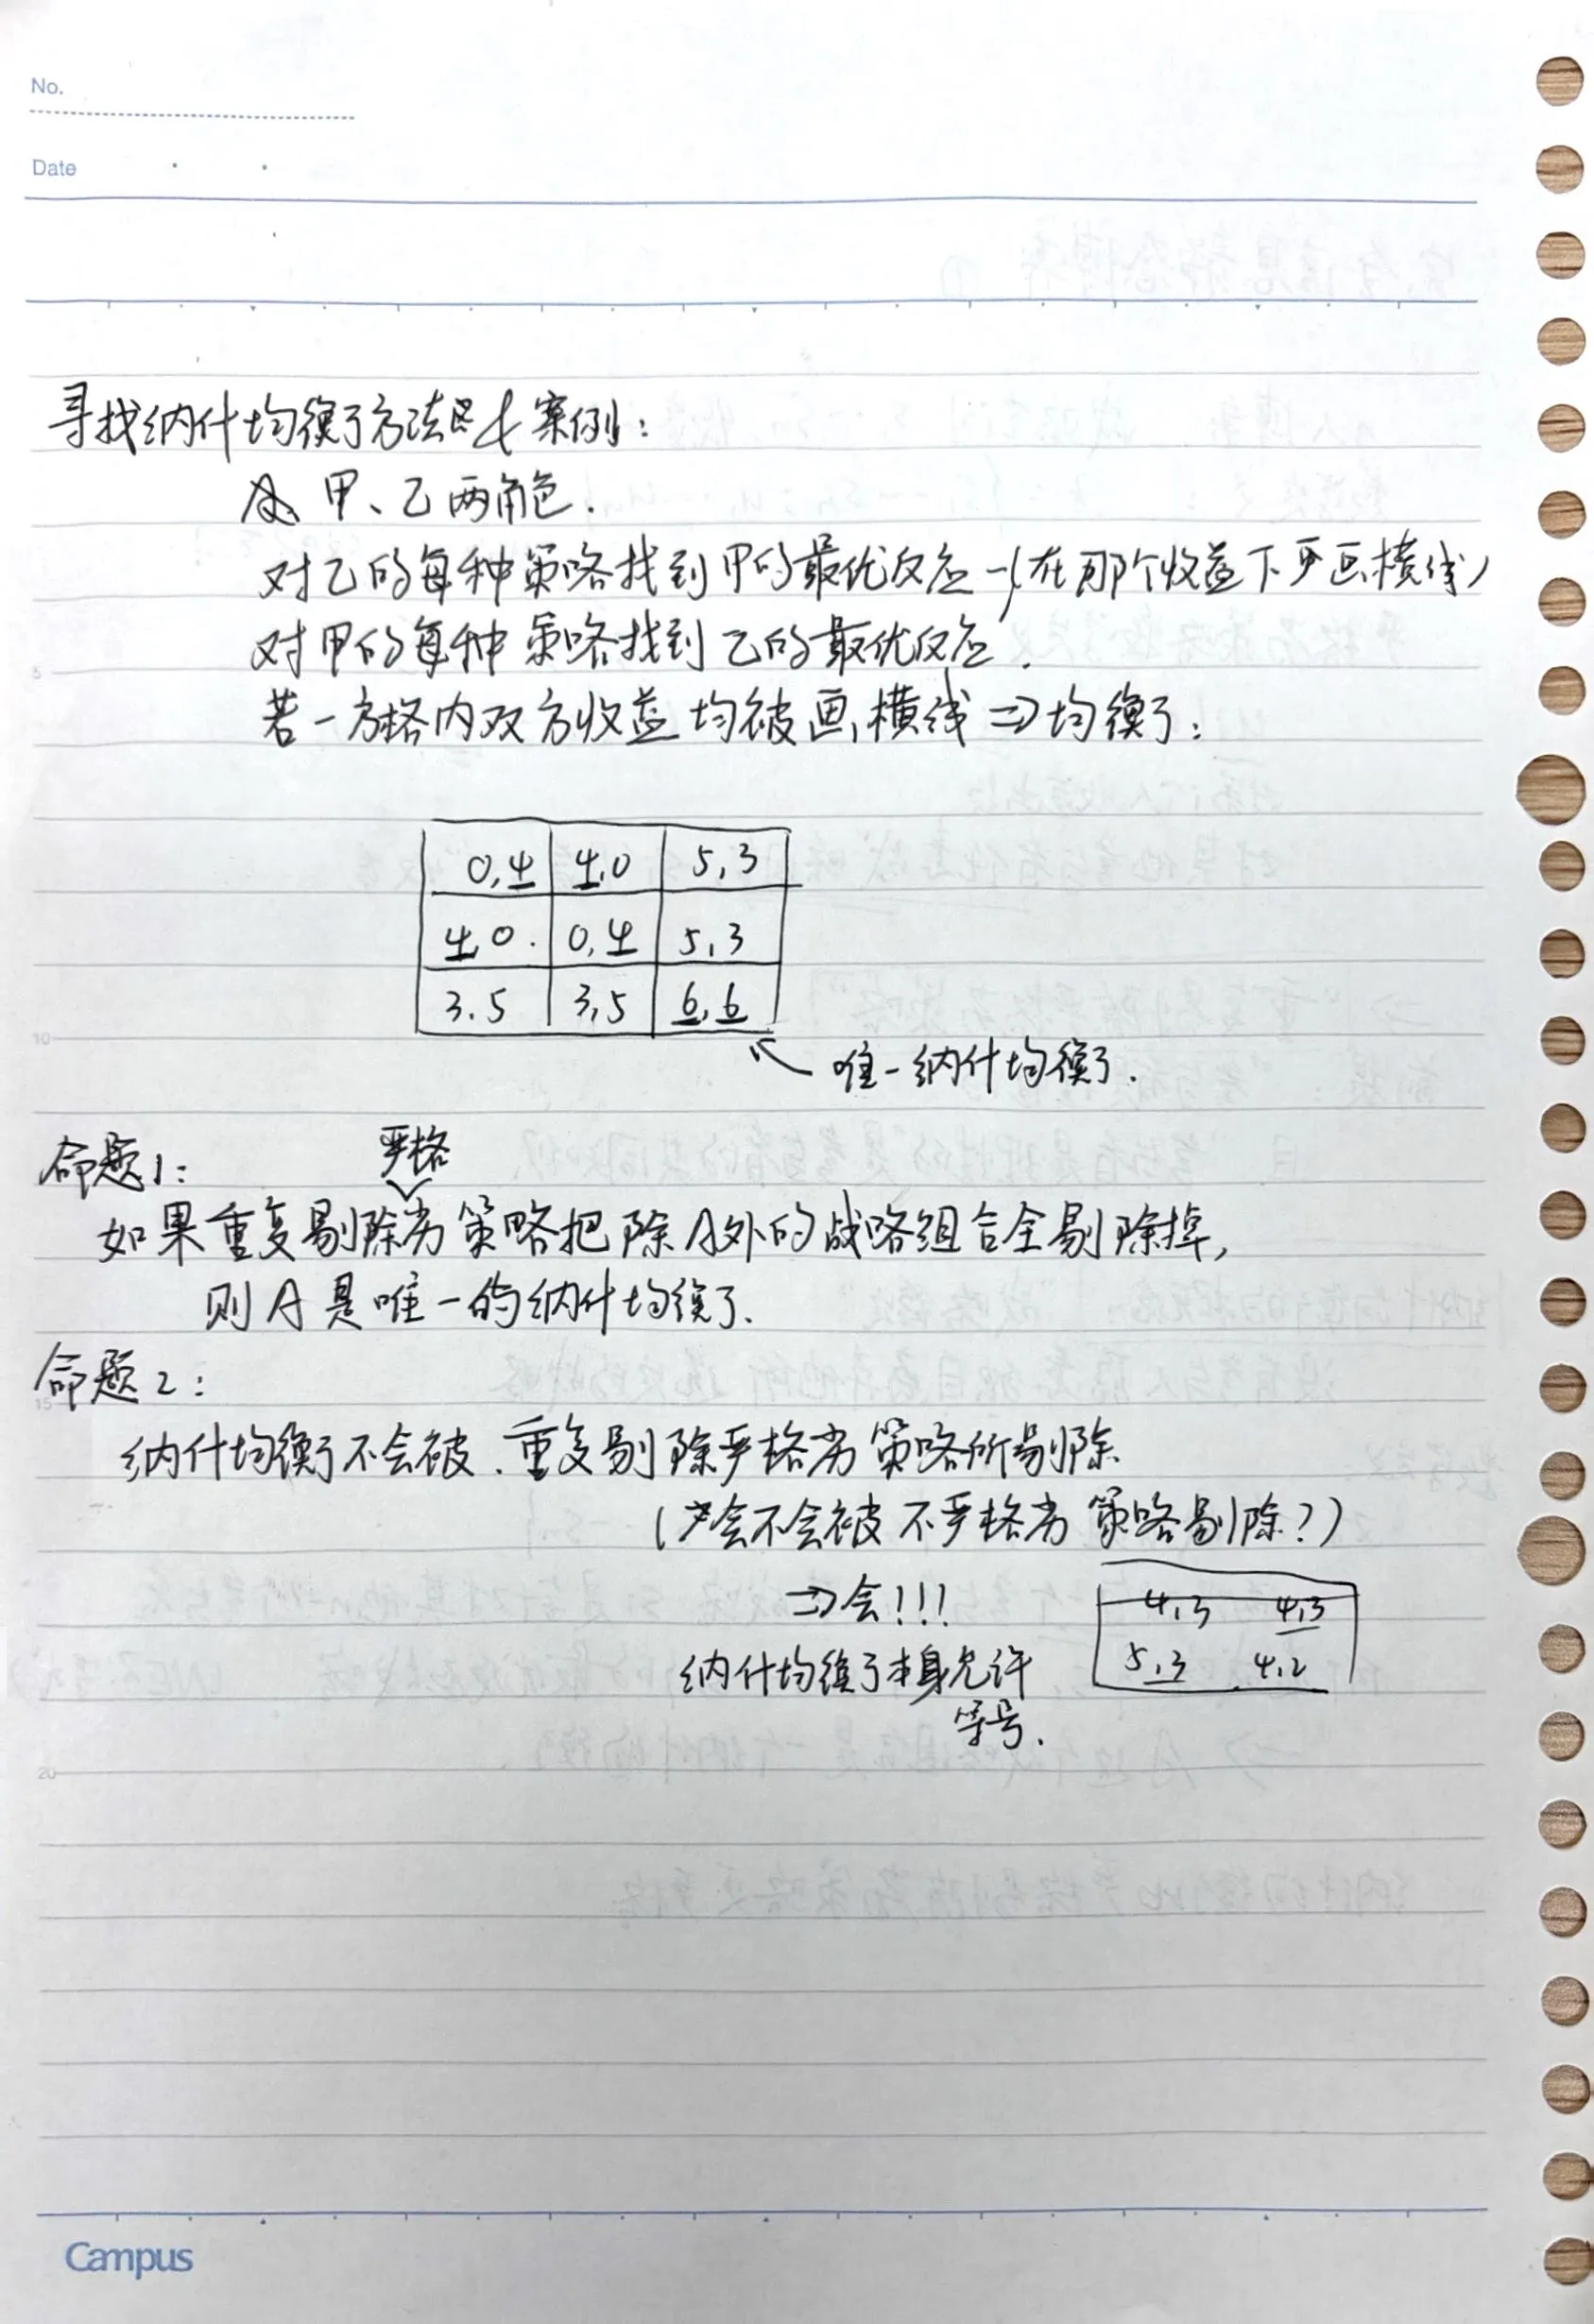 No.
Date
寻找纳什均衡方法 案例:
甲、乙两角色.
对乙的每种策略找到甲的最优反应 (在那个收益下画横线)
对甲的每种策略找到乙的最优反应.
若一方格内双方收益均被画横线 ⇒ 均衡:
0,4 4,0 5,3
4,0. 0,4 5,3
3.5 3,5 6,6
唯一纳什均衡.
命题1:
严格
如果重复剔除劣策略把除A外的战略组合全剔除掉,
则A是唯一的纳什均衡.
命题2:
纳什均衡不会被.重复剔除严格劣策略所剔除
(会不会被不严格劣策略剔除?)
⇒会!!!
4,3 4,3
纳什均衡本身允许
5,3 4,2
等号.
5
10
15
20
Campus